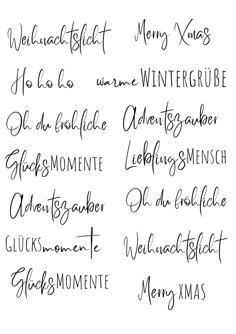 Weihnachtslicht Merry Xmas
Ho ho ho warme WINTERGRÜßE
Oh du fröhliche Adventszauber
GlücksMOMENTE LieblingsMENSCH
Adventszauber Oh du fröhliche
GLÜCKSmomente Weihnachtslicht
GlücksMOMENTE Merry XMAS